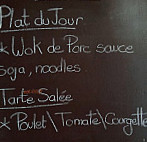 Plat du Jour
* Wok de Porc sauce
soja, noodles
Tarte Salée
* Poulet\Tomate\Courgette